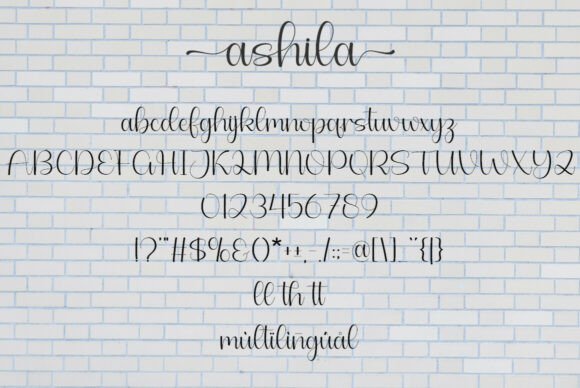 ashila
abcdefghijklmnopqrstuvwxyz
ABCDEFGHIJKLMNOPQRSTUVWXYZ
0123456789
!?"#$%&()*++,-./:;=@[\]_¨{|}
ll th tt
múltïlīngúål